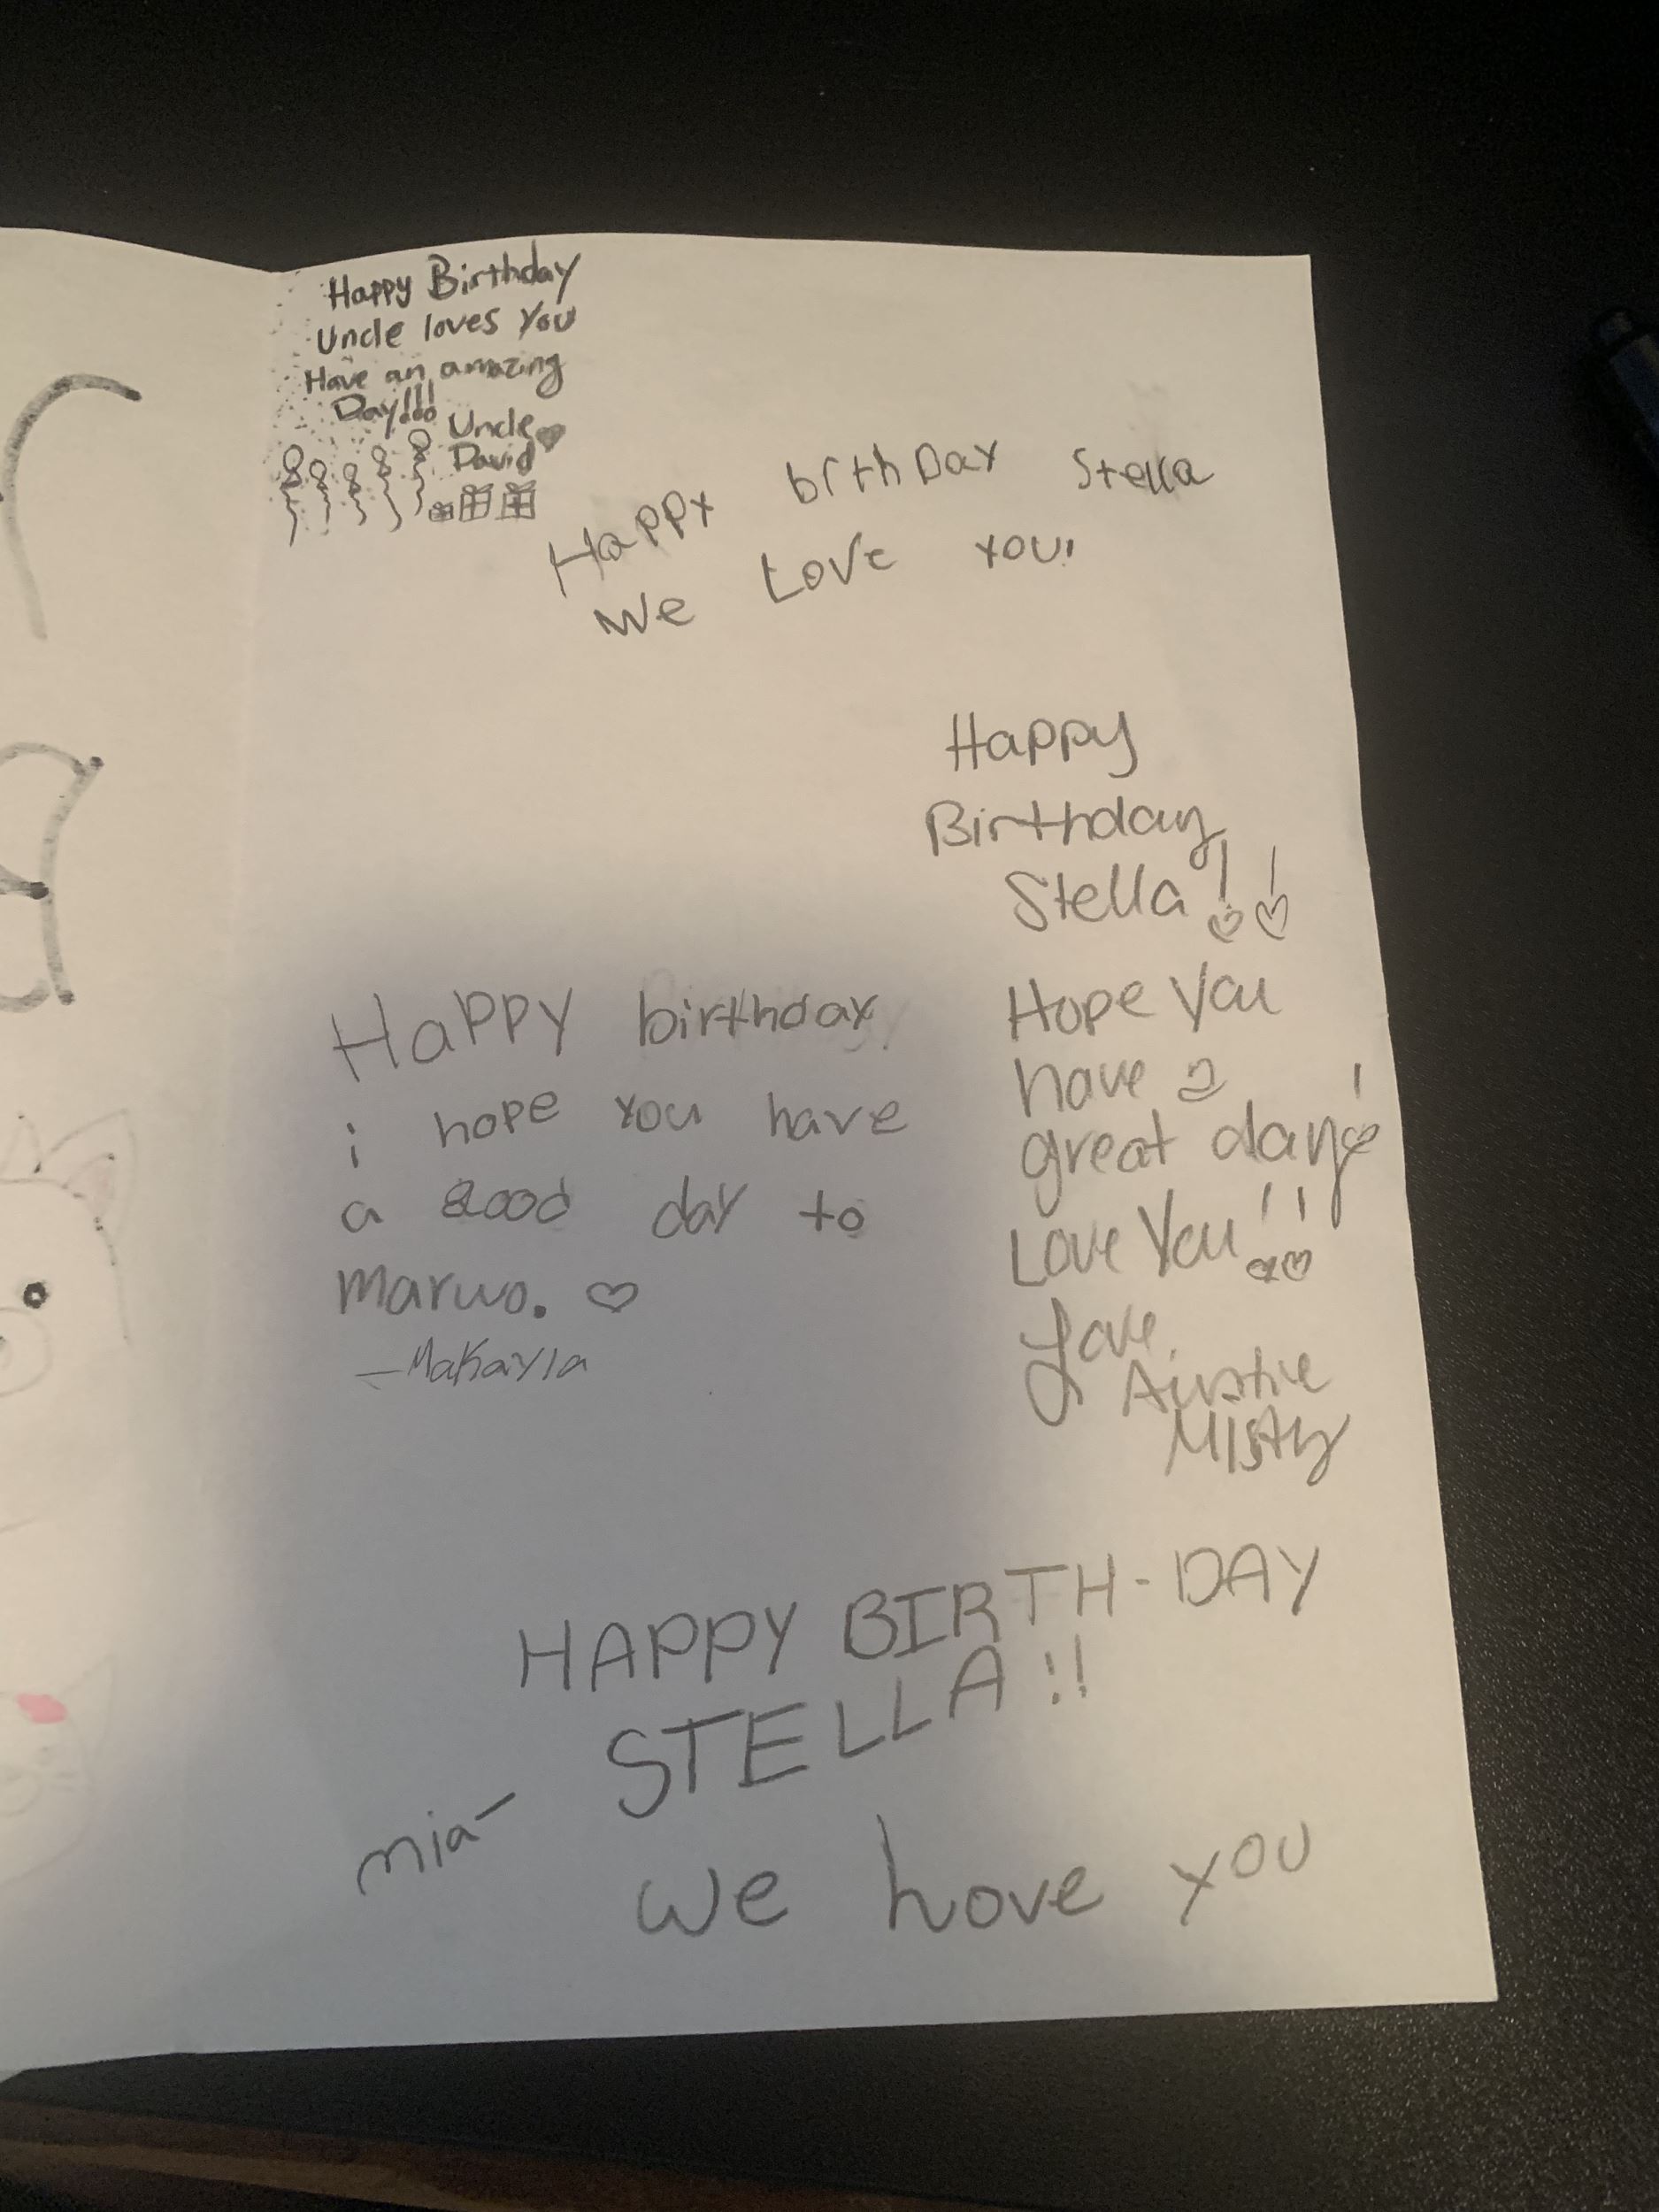 Happy Birthday
Uncle loves You
Have an amazing
Day!!!
Uncle
David
Happy birthDay Stella
We Love you!
Happy
Birthday
Stella!!
Hope you
have a
great day!
Love You!!
Love,
Auntie
Misty
Happy birthday
i hope you have
a good day to
marwo.
-Makayla
HAPPY BIRTH-DAY
STELLA!!
mia-
we hove you